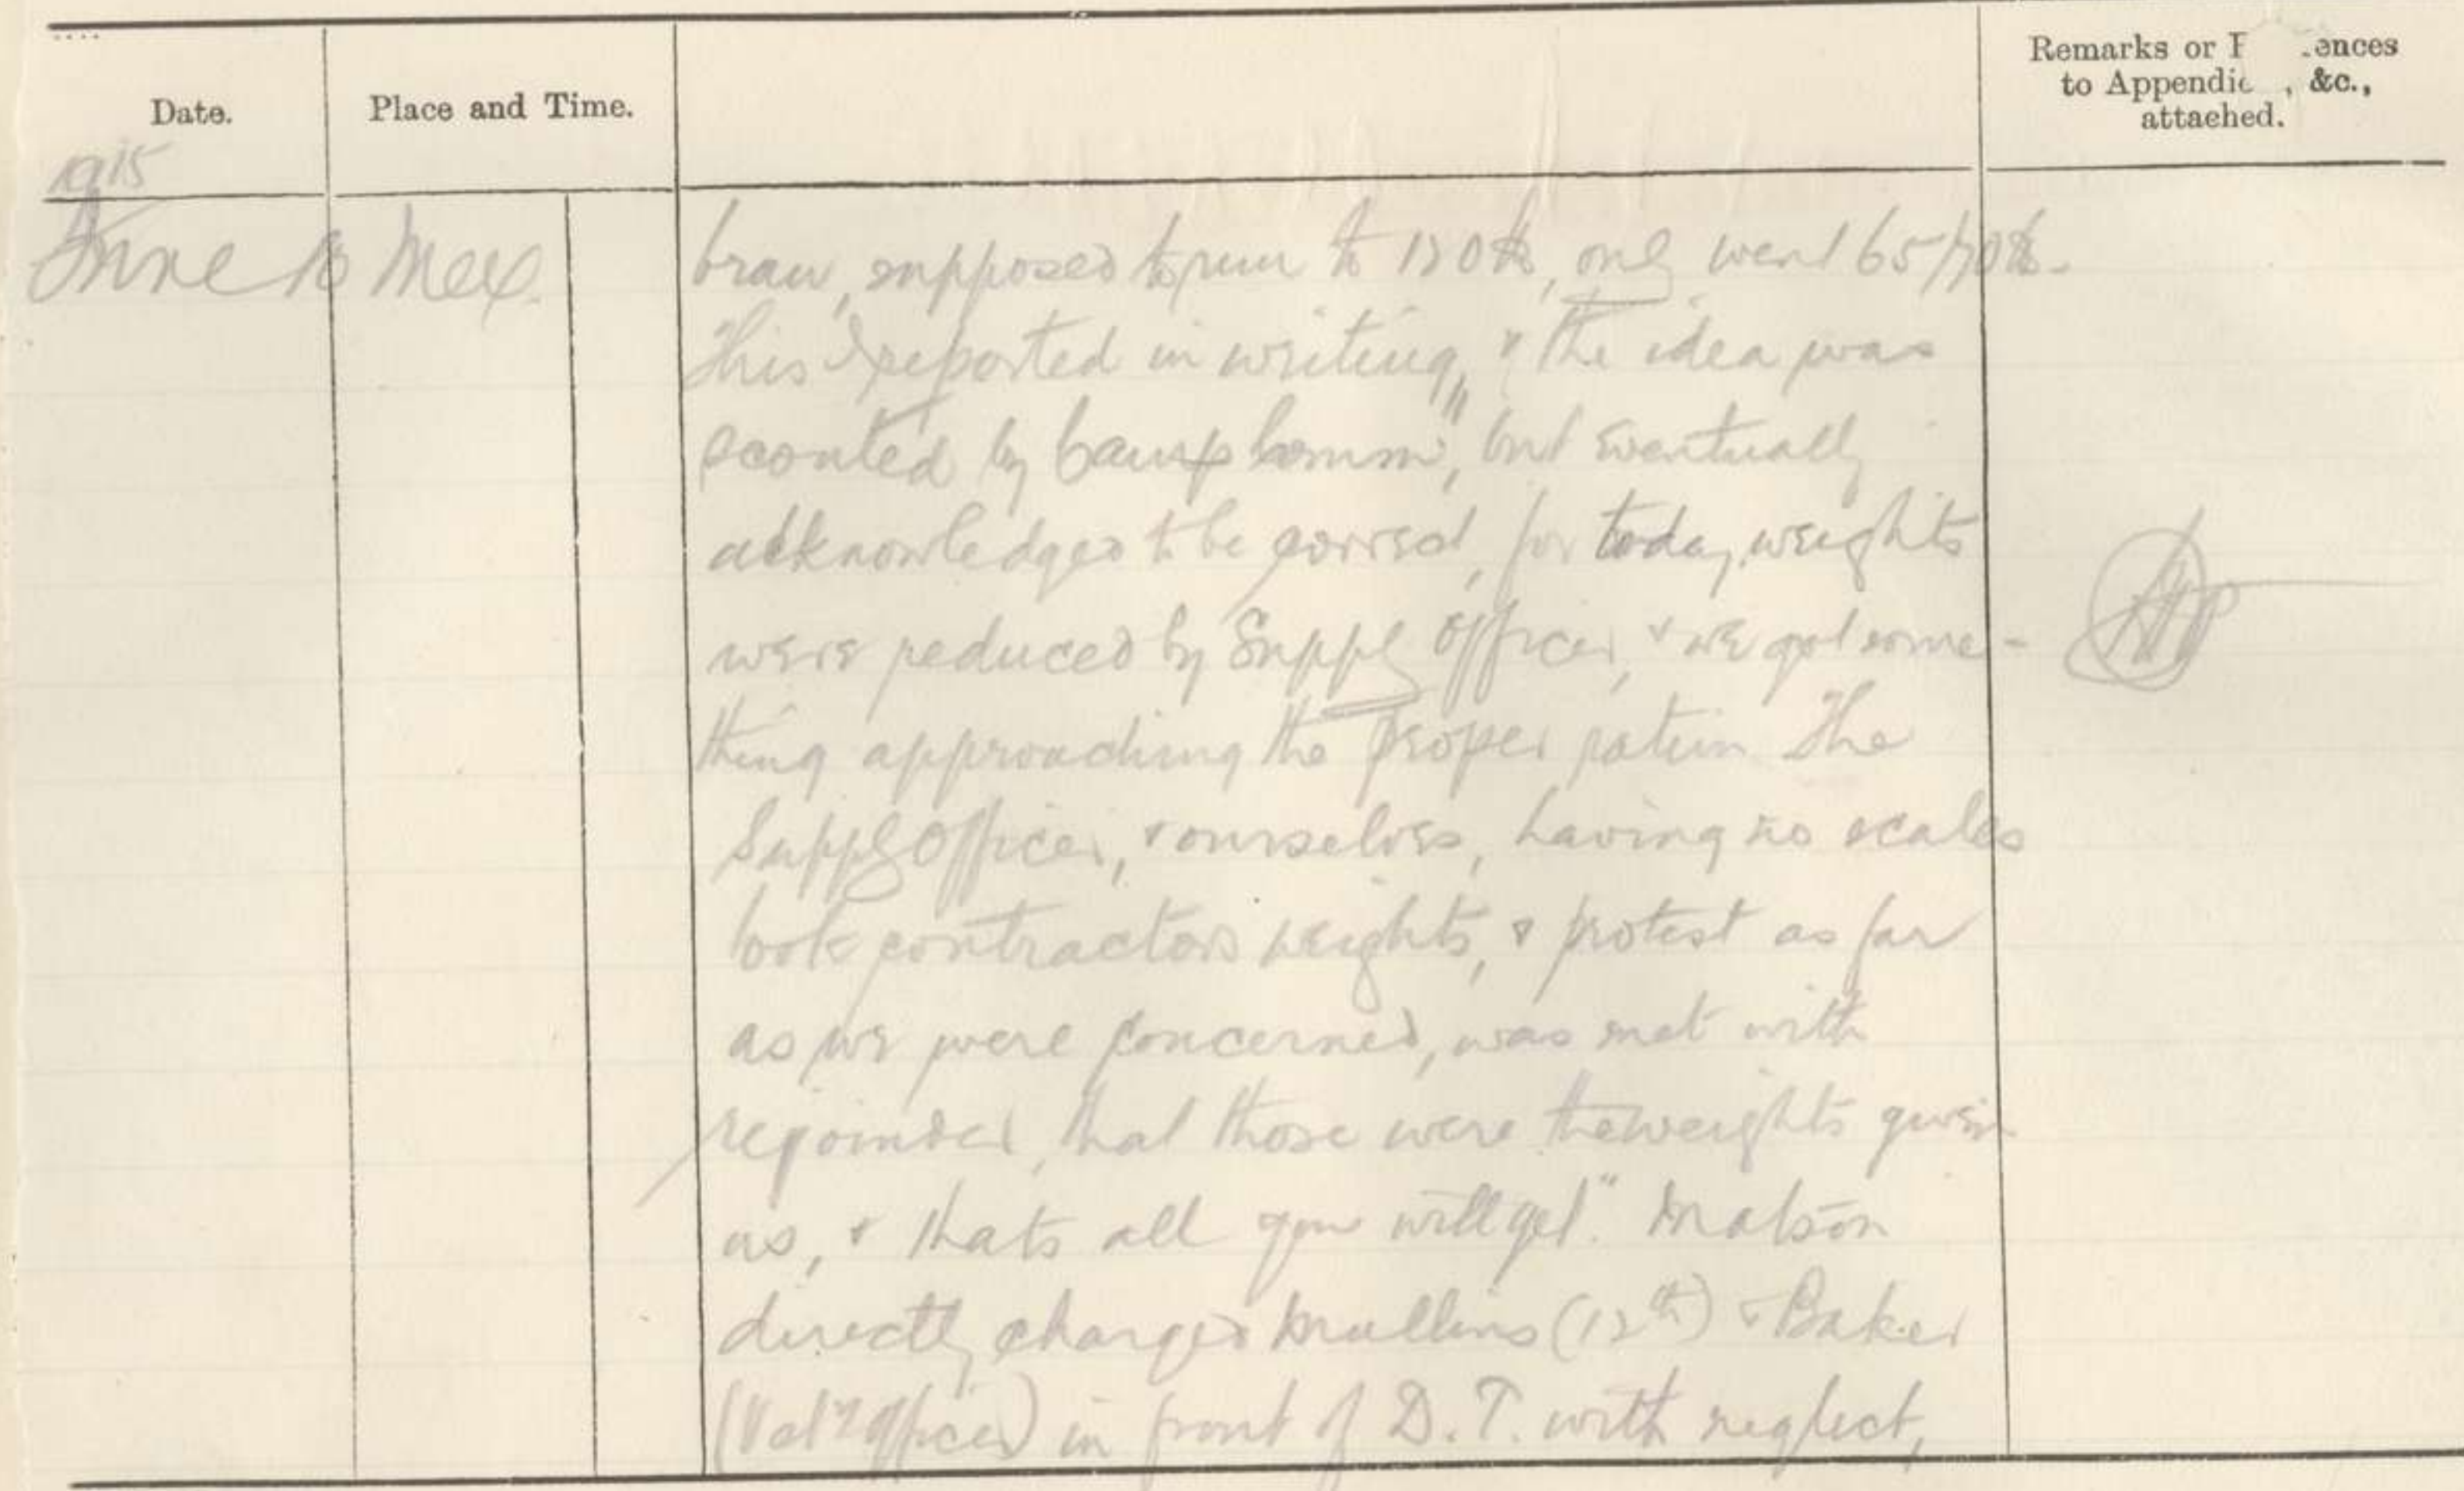 Date.
Place and Time.
Remarks or ences
to Appendic , &c.,
attached.
1915
June 18 Mex.
bran, supposed to run to 120 lbs, only went 65/70 lbs.
This I reported in writing, & the idea was
scouted by "Camp Comm", but eventually
acknowledged to be correct, for today weights
were reduced by Supply Officer, & we got some-
thing approaching the proper ration The
Supply Officer, & ourselves, having no scales
took contractors weights, & protest as far
as we were concerned, was met with
rejoinder, that those were the weights given
us, & thats all you will get." Matson
directly charged Mullins (12th) & Baker
(Vety Officer) in front of D.T. with neglect,